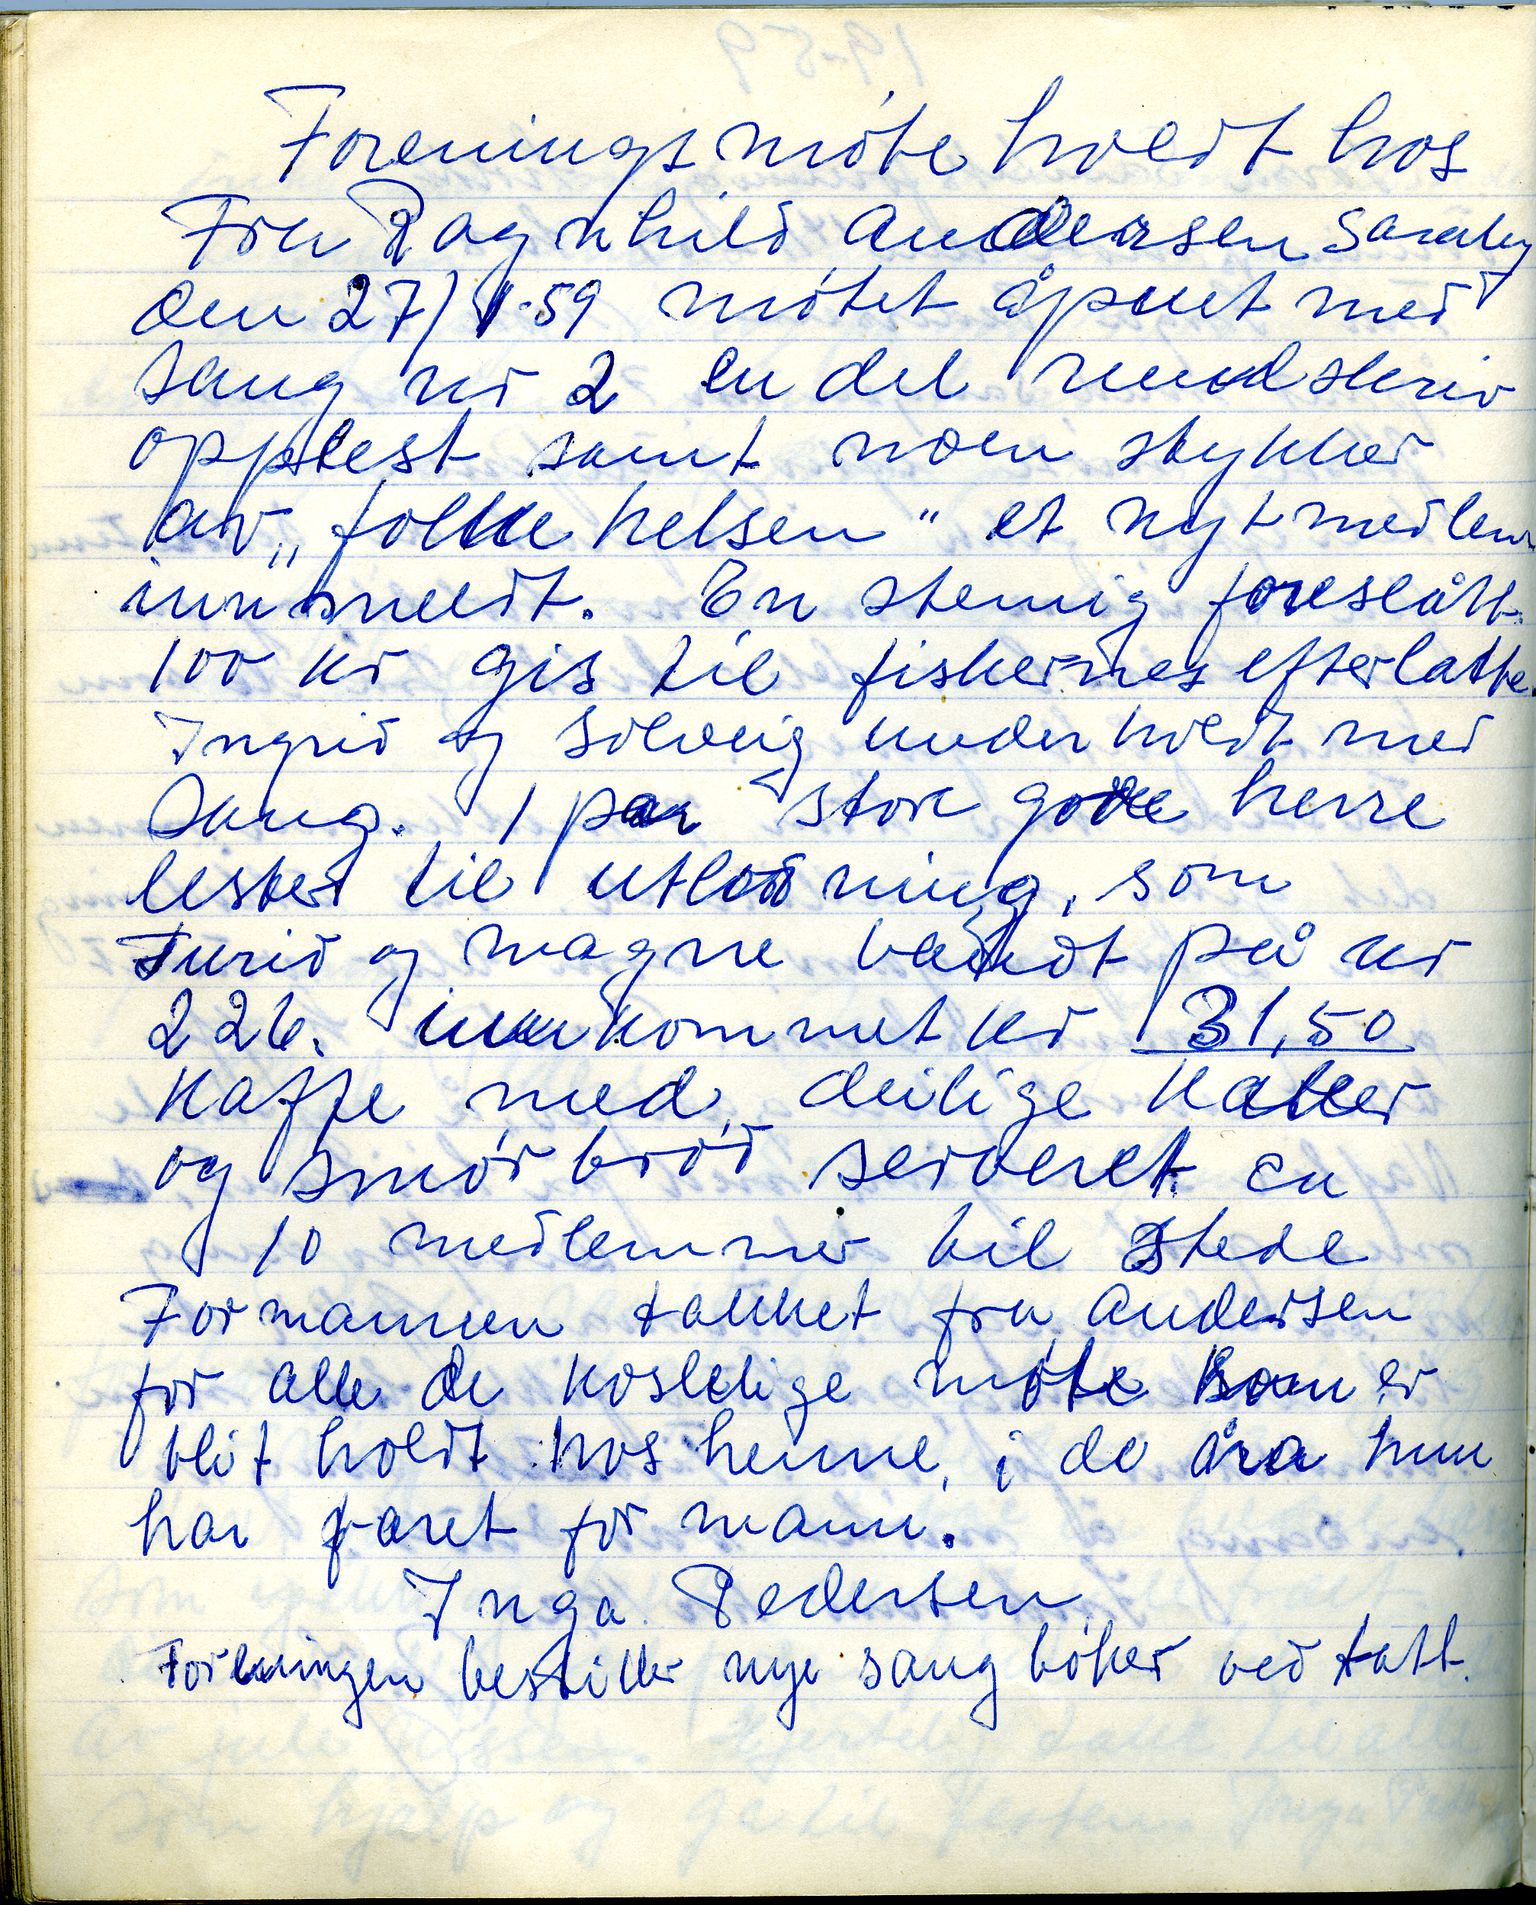 Forenings möte holdt hos
Fru Ragnhild Andersen Saraby
den 27/1-59 mötet åpnet med
sang nr 2 en del rundskriv
opplest samt noen stykker
av „folke helsen" et nyt medlem
innmeldt. En stemig foreslått
100 kr gis til fiskernes efterlatte.
Ingrid og Solveig underholdt med
Sang. 1 par store gode herre
lester til utlodning, som
Turid og magne vandt på nr
226. innkommet kr 31,50
Kaffe med deilige kaker
og smörbröd serveret ca
10 medlemmer til stede
Formannen takket fru Andersen
for alle de koslelige möte som er
blit holdt hos henne, i de åra hun
har varet for mann.
Inga Pedersen
Foreningen bestiller nye sang böker vedtatt.